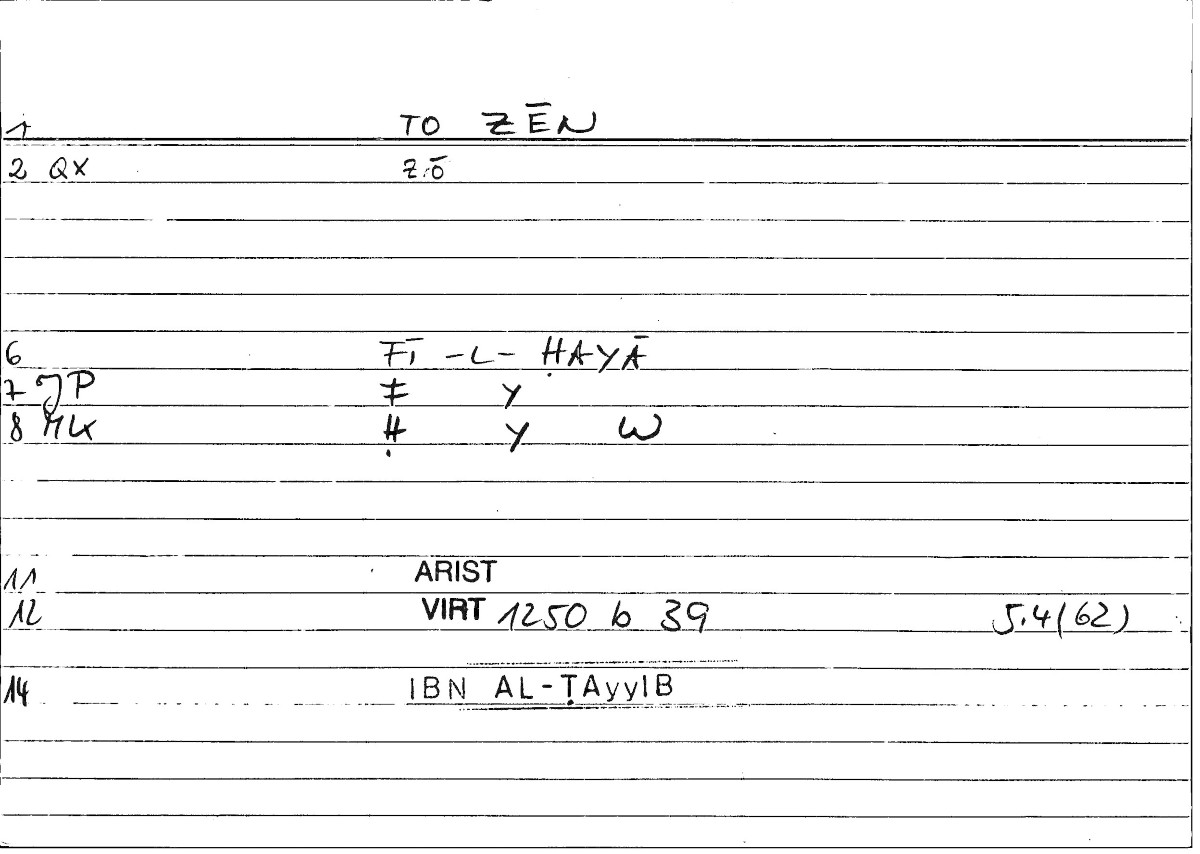 1 TO ZĒN
2 QX ZŌ
6 FĪ -L- ḤAYĀ
7 JP F Y
8 MLX Ḥ Y W
11 ARIST
12 VIRT 1250 b 39 5.4(62)
14 IBN AL-ṬAyyIB